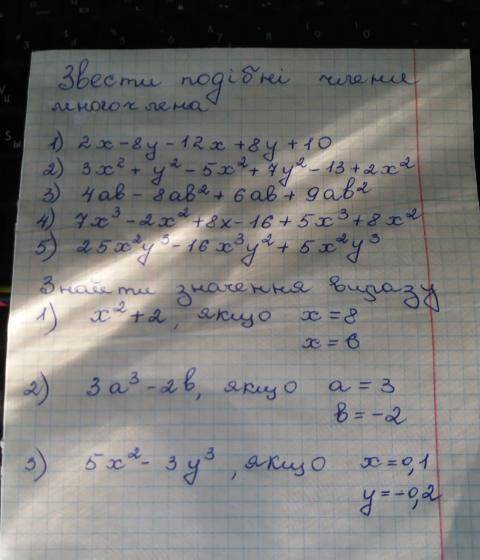 Звести подібні члени
многочлена
1) 2x-8y-12x+8y+10
2) 3x²+y²-5x²+7y²-13+2x²
3) 4ab-8ab²+6ab+9ab²
4) 7x³-2x²+8x-16+5x³+8x²
5) 25x²y³-16x³y²+5x²y³
Знайти значення виразу
1) x²+2, якщо x=8
x=в
2) 3a³-2b, якщо a=3
b=-2
3) 5x²-3y³, якщо x=0,1
y=-0,2